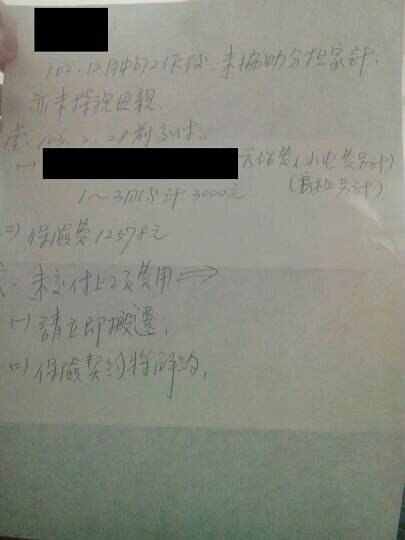 102.12月中旬工作後,未協助分担家計,
亦未探視母親.
壹、103.2.28前交付。
(一) 瓦斯費(水电費另計)
1~3月份計3000元 (房租另計)
(二) 保險費12578元
未交付上2項費用⇒
(一) 請立即搬遷,
(二) 保險契約將解約,